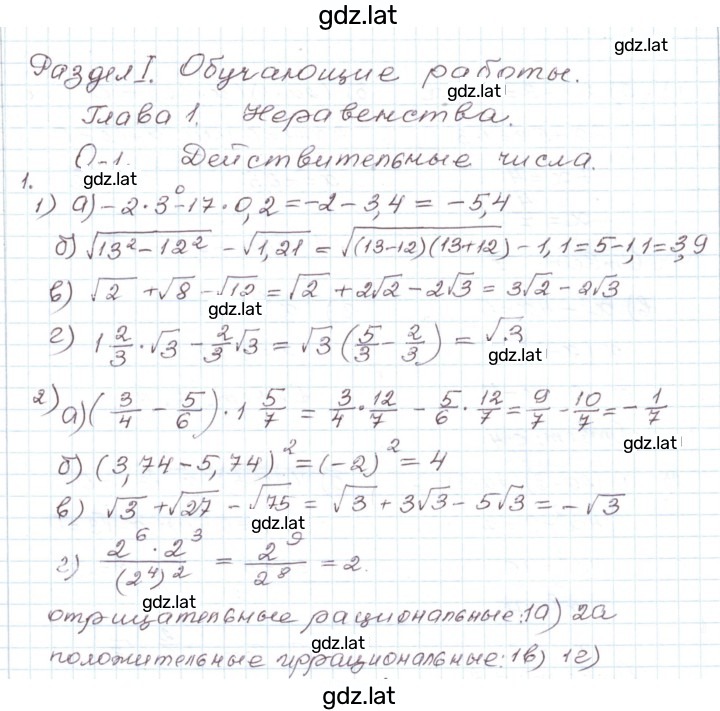 gdz.lat
gdz.lat
Раздел I. Обучающие работы.
gdz.lat
Глава 1. Неравенства.
О-1. Действительные числа.
1. gdz.lat
1) а) -2·3⁰-17·0,2=-2-3,4=-5,4
б) √(13²-12²) - √1,21 = √((13-12)(13+12)) - 1,1=5-1,1=3,9
gdz.lat
в) √2 +√8 -√12 = √2 + 2√2 - 2√3 = 3√2 - 2√3
г) 1 2/3·√3 - 2/3√3 = √3(5/3 - 2/3) = √3
gdz.lat gdz.lat
2) а) (3/4 - 5/6)·1 5/7 = 3/4·12/7 - 5/6·12/7=9/7-10/7=-1/7
gdz.lat
б) (3,74-5,74)²=(-2)²=4
в) √3 +√27 - √75 = √3 + 3√3 - 5√3 = -√3
gdz.lat
г) (2⁶·2³)/(2⁴)² = 2⁹/2⁸ = 2.
gdz.lat
отрицательные рациональные: 1а) 2а
gdz.lat
положительные иррациональные: 1в) 1г)
gdz.lat